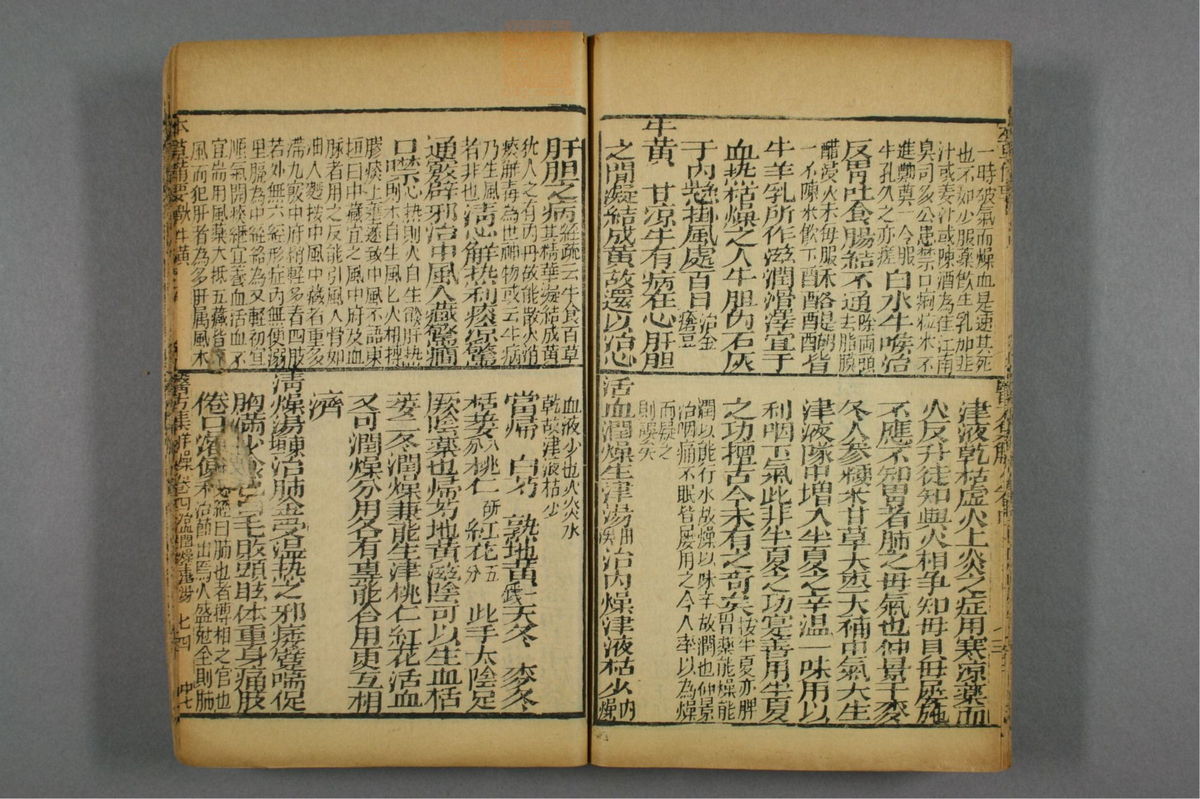 一時破氣而燥血是速其死
也不如少服藥飲生乳加韭
汁或姜汁或陳酒為佳江南
臬司多公患禁口痢粒米不
進鄭奠一令服
牛乳久之亦瘥 白水牛喉治
反胃吐食腸結不通
去脂膜
醋浸火末每服
一不陳米飲下 酥酪醍醐皆
牛羊乳所作滋潤滑澤宜于
血熱枯燥之人牛膽內石灰
于內懸掛風處百日 治金瘡
牛黃 甘凉牛有病在心肝膽
之間凝結成黃故還以治心
津液乾枯虛火上炎之症用寒凉藥而
火反升徒知與火相爭知母貝母屢施
不應不知胃者肺之母氣也仲景于麥
冬人參粳米甘草大棗大補中氣大生
津液隊中增入半夏之辛溫一味用以
利咽下氣此非半夏之功實善用半夏
之功擅古今未有之奇矣 按半夏亦脾胃藥能燥能
潤以能行水故燥以味辛故潤也仲景
治咽痛不眠皆屢用之今人率以為燥
而疑之
則誤矣
活血潤燥生津湯 治內燥津液枯少 內燥
肝膽之病 經疏云牛食百草其精華凝結成黃
猶人之有內丹故能散火消
痰解毒為世神物或云牛病
乃生風
者非也 清心解熱利痰凉驚
通竅辟邪治中風入藏驚癇
口噤 心熱則火自生燄肝熱則木自生風風火相搏
膠痰上壅遂致中風不語東
垣曰中藏宜之風中府及血
脈者用之反能引風入骨如
油入麫按中風中藏者重多
滯九竅中府稍輕多着四肢
若外無六經形症內無便溺
里膈為中經絡為又輕初宜
順氣開痰繼宜養血活血不
宜耑用風藥大抵五藏皆有
風而犯肝者為多肝屬風木
血液少也火炎水
乾故津液枯少
當歸 白芍 熟地黃 天冬 麥冬
栝蔞 桃仁研 紅花五分 此手太陰足
厥陰藥也歸芍地黃滋陰可以生血栝
蔞二冬潤燥兼能生津桃仁紅花活血
又可潤燥分用各有專能合用更互相
濟
清燥湯 治肺金受濕熱之邪痿躄喘促
胸滿少食色白毛敗頭眩體重身痛肢
倦口渴便秘 經曰肺也者傅相之官也治節出焉火盛尅金則肺
本草備要
醫方集解
七四